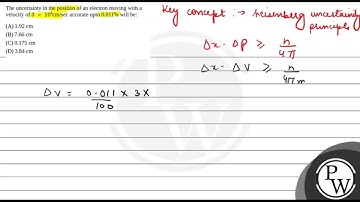 The uncertainty in the position of an electron moving with a
velocity of 3 × 10⁴cm/sec accurate upto 0.011% will be:
(A) 1.92 cm
(B) 7.66 cm
(C) 0.175 cm
(D) 3.84 cm
Key concept :→ Heisenberg uncertainty
principle
Δx · ΔP ≥ h/4π
Δx · ΔV ≥ h/4πm
ΔV = 0.011 × 3 ×
100
P
W